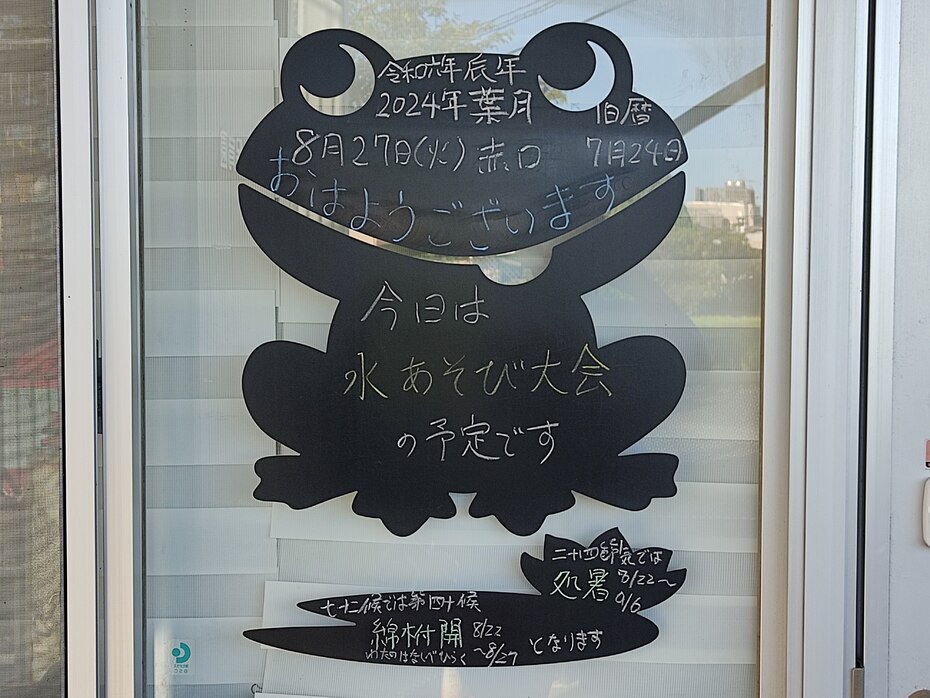 令和六年辰年
2024年葉月
旧暦
8月27日(火)赤口
7月24日
おはようございます
今日は
水あそび大会
の予定です
二十四節気では
処暑 8/22〜
9/6
七十二候では第四十候
綿柎開 8/22
わたのはなしべひらく 〜8/27
となります